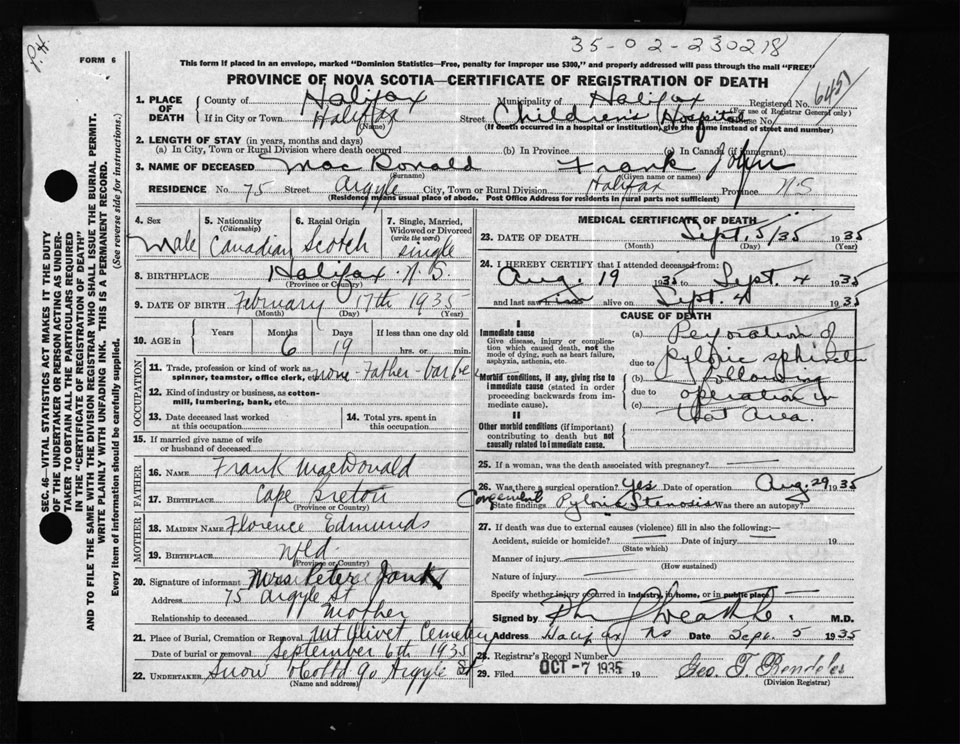 35-02-230218
P.H.
FORM 6
This form if placed in an envelope, marked "Dominion Statistics—Free, penalty for improper use $300," and properly addressed will pass through the mail "FREE"
PROVINCE OF NOVA SCOTIA—CERTIFICATE OF REGISTRATION OF DEATH
SEC. 46—VITAL STATISTICS ACT MAKES IT THE DUTY
OF THE UNDERTAKER OR PERSON ACTING AS UNDER-
TAKER TO OBTAIN ALL THE PARTICULARS REQUIRED
IN THE "CERTIFICATE OF REGISTRATION OF DEATH"
AND TO FILE THE SAME WITH THE DIVISION REGISTRAR WHO SHALL ISSUE THE BURIAL PERMIT.
WRITE PLAINLY WITH UNFADING INK. THIS IS A PERMANENT RECORD.
Every item of information should be carefully supplied. (See reverse side for instructions.)
1. PLACE OF DEATH
County of Halifax Municipality of Halifax Registered No. 6451
(For use of Registrar General only)
If in City or Town Halifax Street Children's Hospital House No.
(Name) (If death occurred in a hospital or institution, give the name instead of street and number)
2. LENGTH OF STAY (in years, months and days)
(a) In City, Town or Rural Division where death occurred (b) In Province (c) In Canada (if immigrant)
3. NAME OF DECEASED Mac Donald Frank John
(Surname) (Given name or names)
RESIDENCE No. 75 Street Argyle City, Town or Rural Division Halifax Province N.S
(Residence means usual place of abode. Post Office Address for residents in rural parts not sufficient)
4. Sex Male
5. Nationality (Citizenship) Canadian
6. Racial Origin Scotch
7. Single, Married, Widowed or Divorced (write the word) Single
8. BIRTHPLACE Halifax N.S.
(Province or Country)
9. DATE OF BIRTH February 17th 1935
(Month) (Day) (Year)
10. AGE Years Months 6 Days 19 If less than one day old hrs. or min.
OCCUPATION
11. Trade, profession or kind of work as spinner, teamster, office clerk, etc. none - Father - barber
12. Kind of industry or business, as cotton-mill, lumbering, bank, etc.
13. Date deceased last worked at this occupation
14. Total yrs. spent in this occupation
15. If married give name of wife or husband of deceased
FATHER
16. NAME Frank MacDonald
17. BIRTHPLACE Cape Breton
(Province or Country)
MOTHER
18. MAIDEN NAME Florence Edmunds
19. BIRTHPLACE Nfld.
(Province or Country)
20. Signature of informant Mrs Peter
Address 75 Argyle St
Relationship to deceased Mother
21. Place of Burial, Cremation or Removal Mt Olivet Cemetery
Date of burial or removal September 6th 1935
22. UNDERTAKER Snow & Co Ltd 90 Argyle St
(Name and address)
MEDICAL CERTIFICATE OF DEATH
23. DATE OF DEATH Sept. 5/35 1935
(Month) (Day) (Year)
24. I HEREBY CERTIFY that I attended deceased from:
Aug. 19 1935 to Sept. 4 1935
and last saw him alive on Sept. 4 1935
CAUSE OF DEATH
I
Immediate cause
Give disease, injury or complication which caused death, not the mode of dying, such as heart failure, asphyxia, asthenia, etc.
Morbid conditions, if any, giving rise to immediate cause (stated in order proceeding backwards from immediate cause).
II
Other morbid conditions (if important) contributing to death but not causally related to immediate cause.
(a) Perforation of
due to pyloric sphincter
(b) following
due to operation in
(c) that area.
25. If a woman, was the death associated with pregnancy?
26. Was there a surgical operation? Yes Date of operation Aug. 29 1935
State findings Congenital Pyloric Stenosis Was there an autopsy?
27. If death was due to external causes (violence) fill in also the following:—
Accident, suicide or homicide? Date of injury 19
(State which)
Manner of injury
(How sustained)
Nature of injury
Specify whether injury occurred in industry, in home, or in public place
Signed by M.D.
Address Halifax NS Date Sept. 5 1935
28. Registrar's Record Number
29. Filed OCT -7 1935 19 Geo. T.
(Division Registrar)